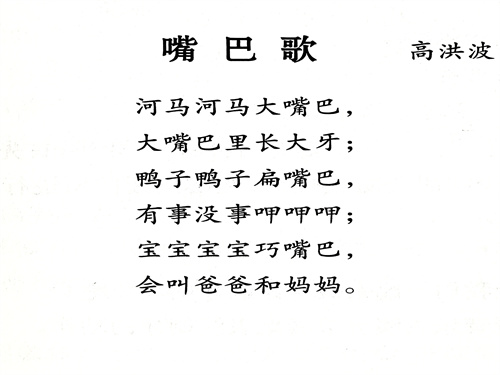 嘴巴歌 高洪波
河马河马大嘴巴，
大嘴巴里长大牙；
鸭子鸭子扁嘴巴，
有事没事呷呷呷；
宝宝宝宝巧嘴巴，
会叫爸爸和妈妈。